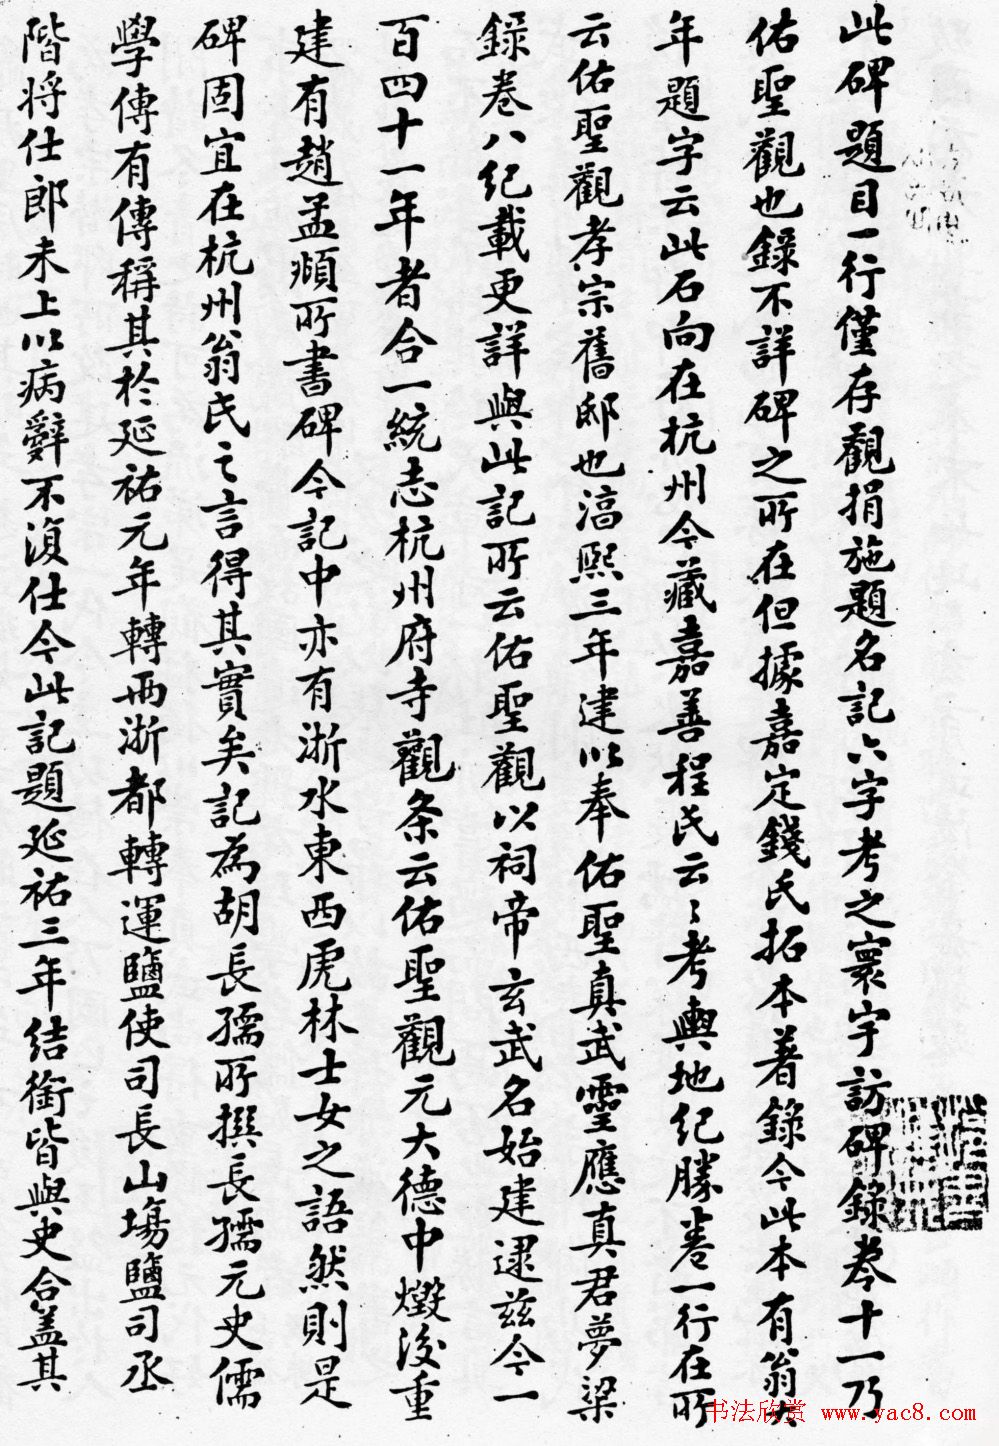 此碑題目一行僅存觀捐施題名記六字考之寰宇訪碑錄卷十一乃
佑聖觀也錄不詳碑之所在但據嘉定錢氏拓本著錄今此本有翁大
年題字云此石向在杭州今藏嘉善程氏云〻考輿地紀勝卷一行在所
云佑聖觀孝宗舊邸也淳熙三年建以奉佑聖真武靈應真君夢梁
錄卷八紀載更詳與此記所云佑聖觀以祠帝玄武名始建逮茲今一
百四十一年者合一統志杭州府寺觀条云佑聖觀元大德中燬後重
建有趙孟頫所書碑今記中亦有浙水東西虎林士女之語然則是
碑固宜在杭州翁氏之言得其實矣記為胡長孺所撰長孺元史儒
學傳有傳稱其於延祐元年轉兩浙都轉運鹽使司長山場鹽司丞
階將仕郎未上以病辭不復仕今此記題延祐三年結銜皆與史合蓋其
书法欣赏 www.yac8.com